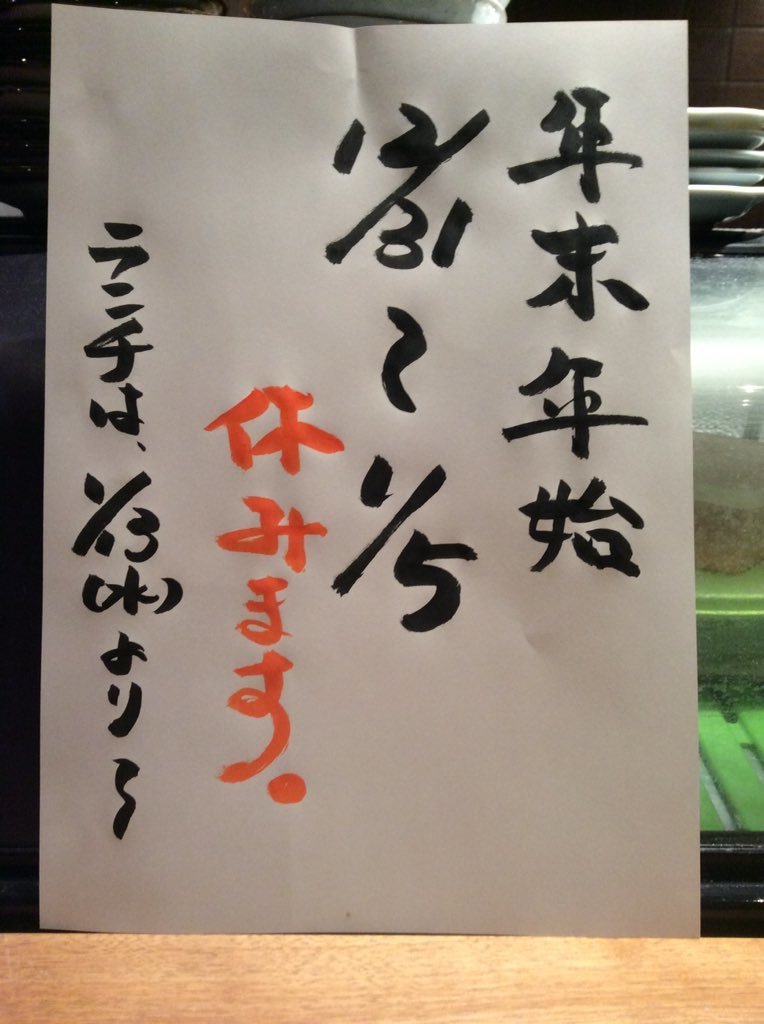 年末年始
12/31〜1/5
休みます。
ランチは、1/13(水)より〜